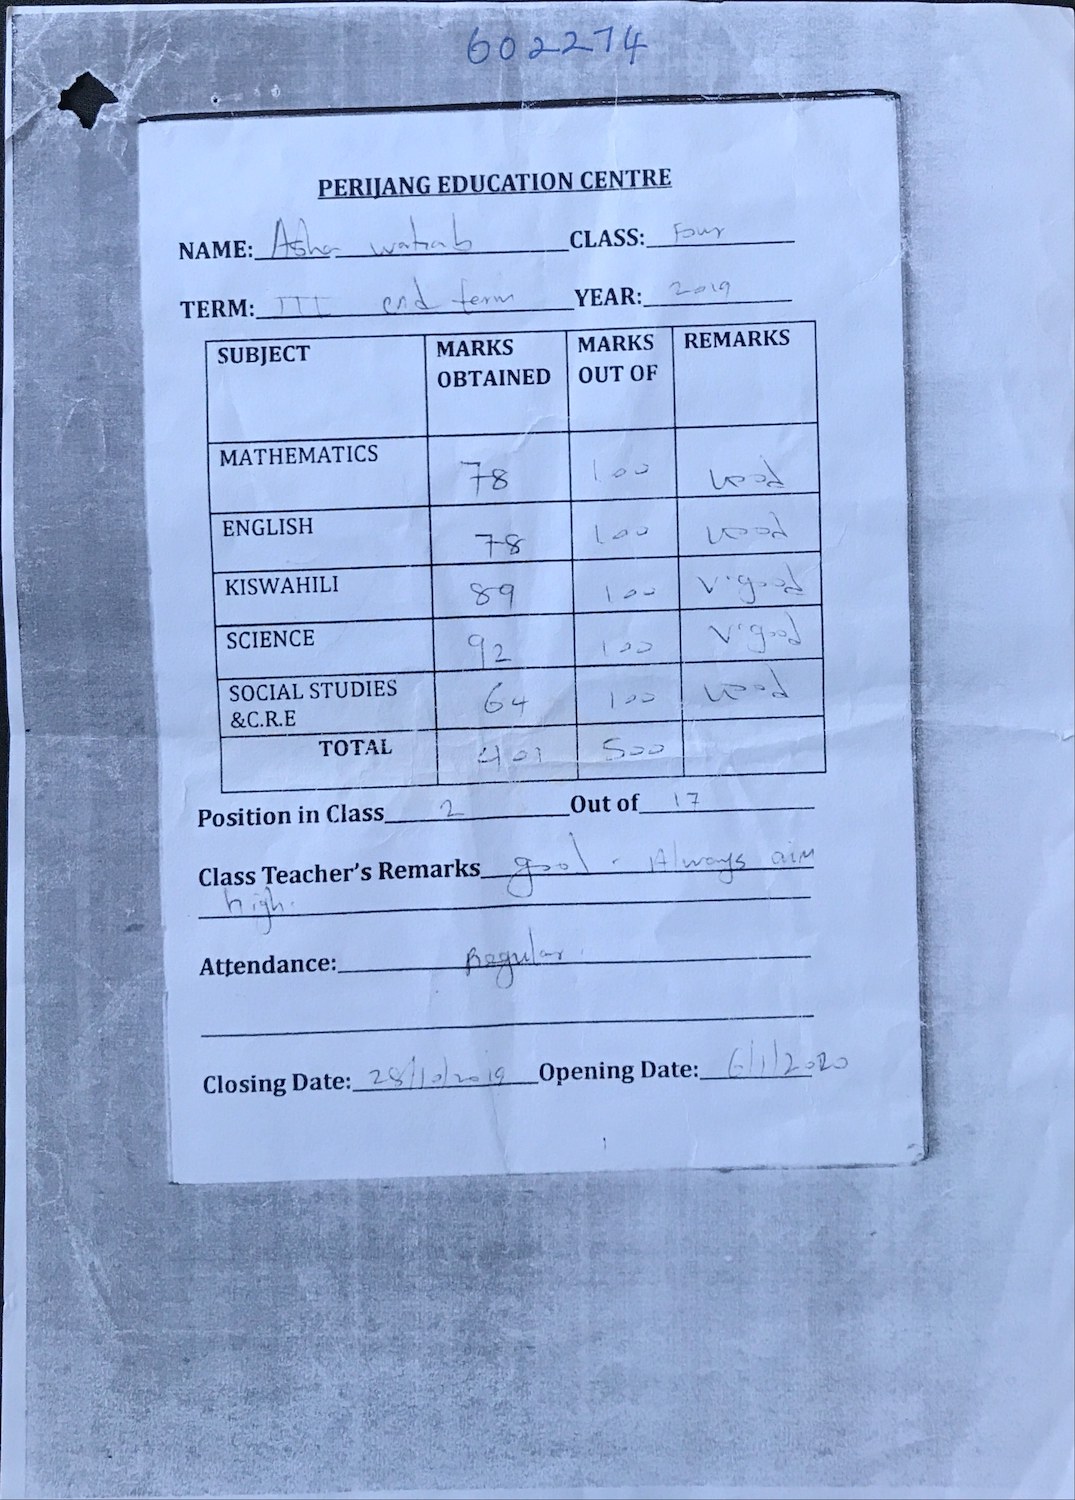 602274
PERIJANG EDUCATION CENTRE
NAME: Asha watiab CLASS: Four
TERM: III end term YEAR: 2019
SUBJECT MARKS OBTAINED MARKS OUT OF REMARKS
MATHEMATICS 78 100 Good
ENGLISH 78 100 Good
KISWAHILI 89 100 V.good
SCIENCE 92 100 V.good
SOCIAL STUDIES &C.R.E 64 100 Good
TOTAL 401 500
Position in Class 2 Out of 17
Class Teacher's Remarks good. Always aim
high.
Attendance: Regular.
Closing Date: 28/10/2019 Opening Date: 6/1/2020